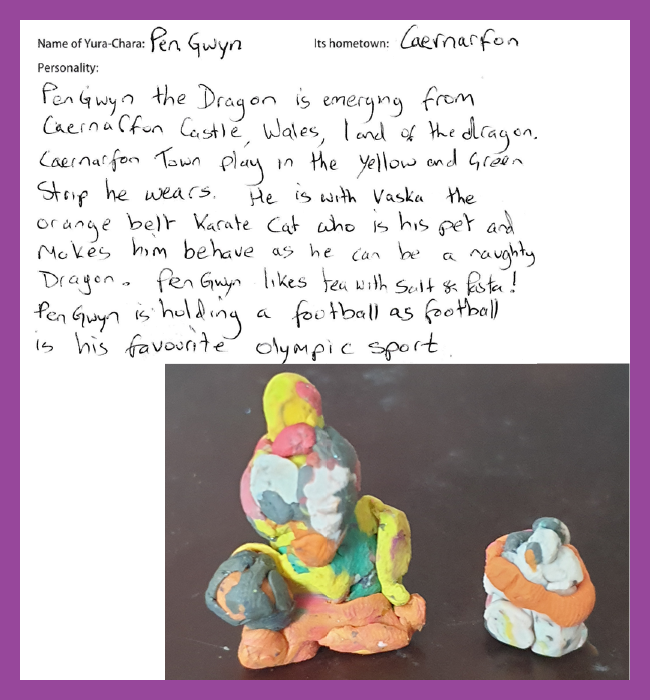 Name of Yura-Chara: Pen Gwyn Its hometown: Caernarfon
Personality:
Pen Gwyn the Dragon is emerging from
Caernarfon Castle, Wales, land of the dragon.
Caernarfon Town play in the yellow and Green
Strip he wears. He is with Vaska the
orange belt Karate Cat who is his pet and
Makes him behave as he can be a naughty
Dragon. Pen Gwyn likes tea with Salt & Pasta!
Pen Gwyn is holding a football as football
is his favourite olympic sport.